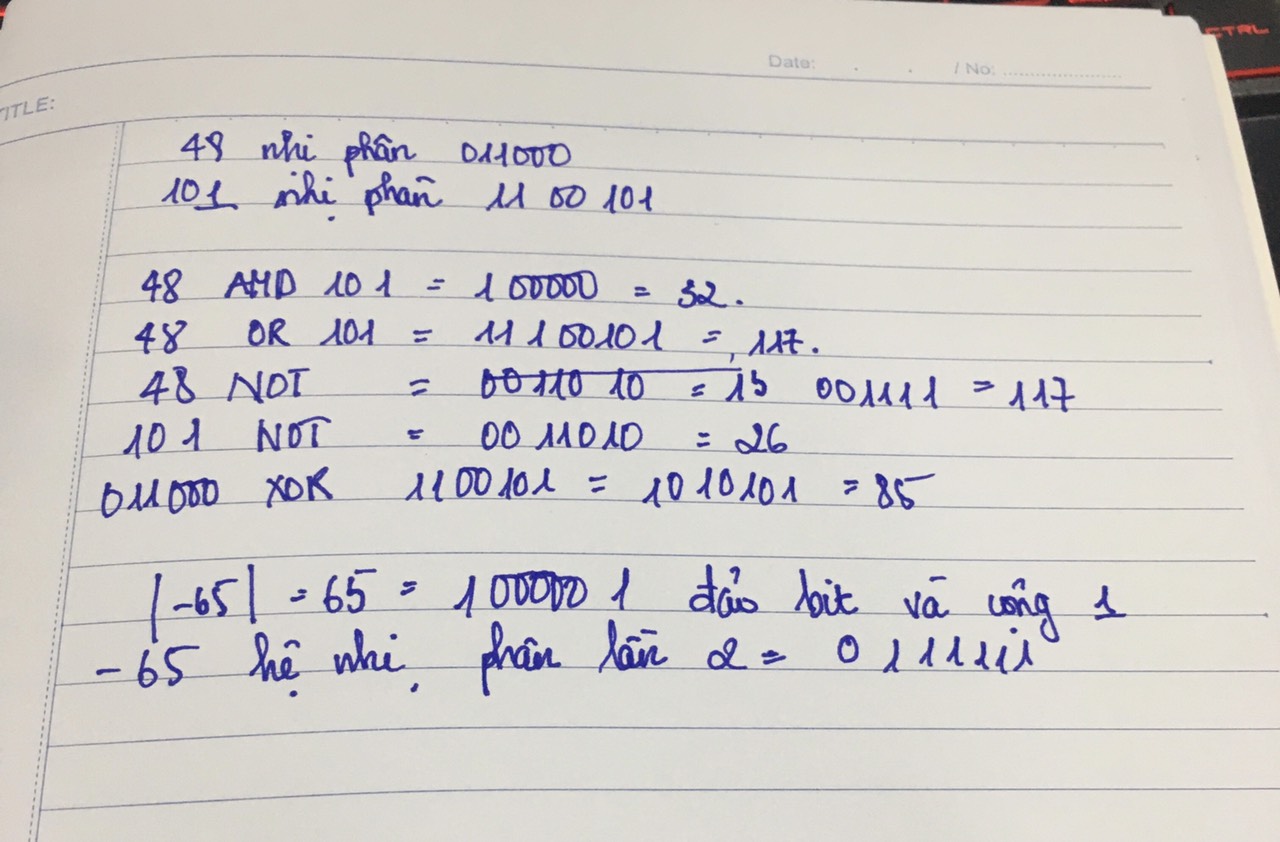 CTRL
Date: . . / No: ....................
TITLE:
48 nhi phân 011000
101 nhị phân 11 00 101
48 AND 101 = 100000 = 32.
48 OR 101 = 11100101 = 117.
48 NOT = 0011010 = 15 001111 = 117
101 NOT = 0011010 = 26
011000 XOR 1100101 = 1010101 = 85
|-65| = 65 = 1000001 đảo bit và cộng 1
-65 hệ nhị phân lần 2 = 0111111